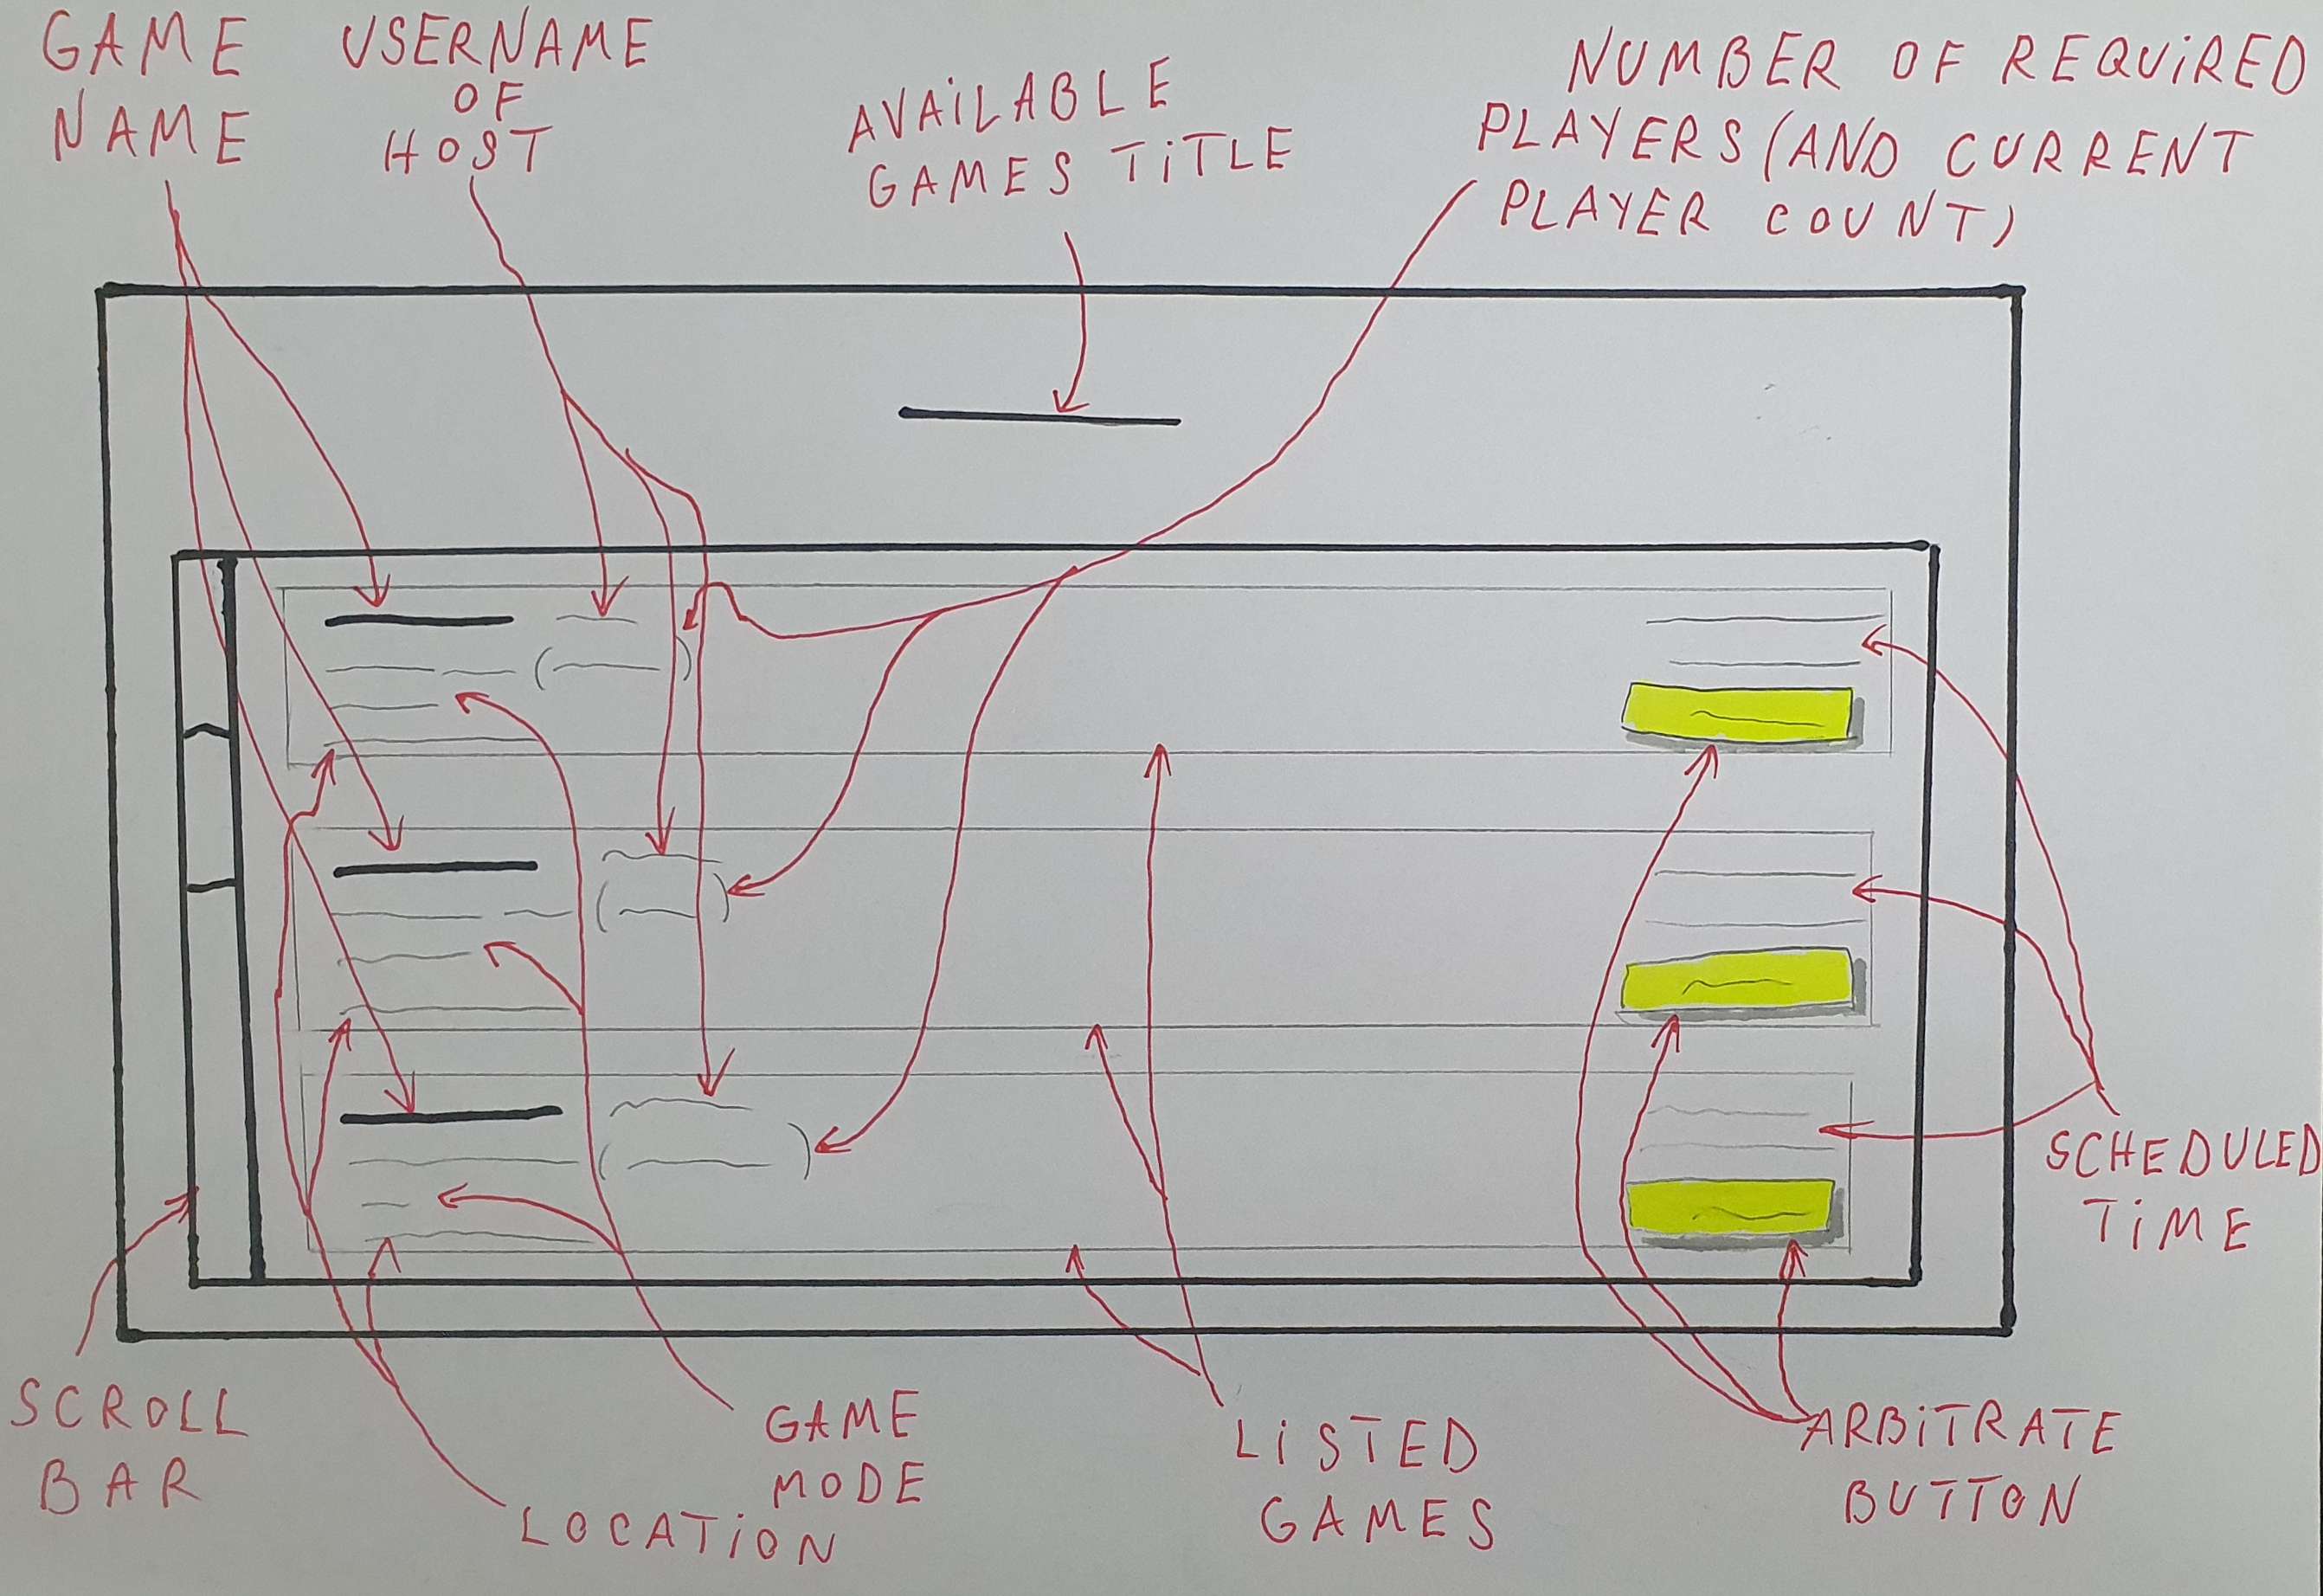 GAME
NAME
USERNAME
OF
HOST
AVAiLABLE
GAMES TiTLE
NUMBER OF REQUiRED
PLAYERS (AND CURRENT
PLAYER COUNT)
SCHEDULED
TiME
SCROLL
BAR
LOCATiON
GAME
MODE
LiSTED
GAMES
ARBiTRATE
BUTTON